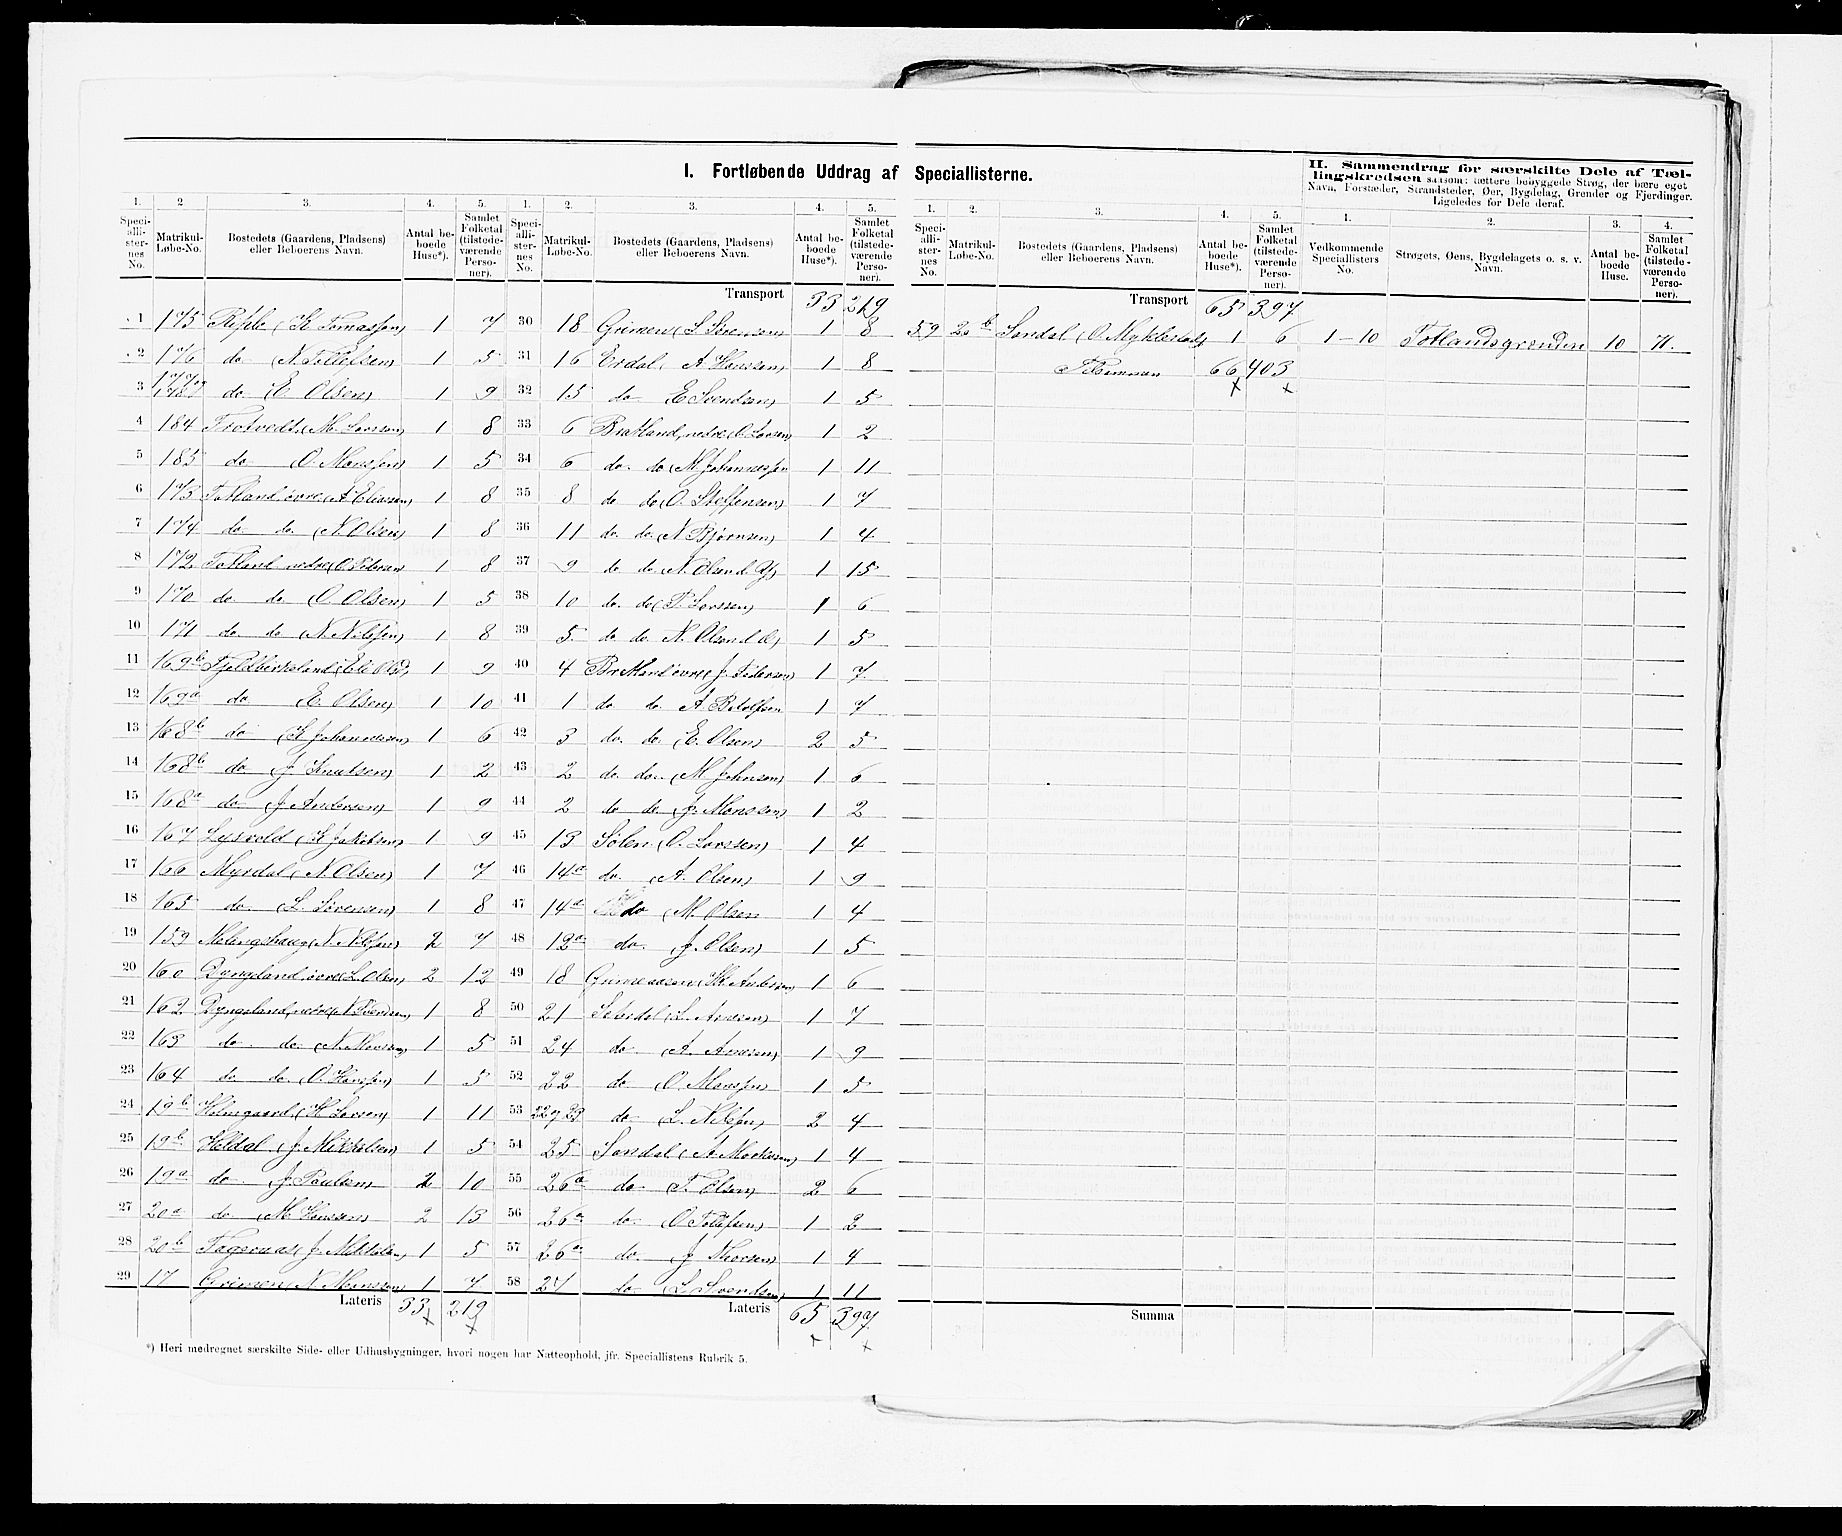 I. Fortløbende Uddrag af Speciallisterne.
II. Sammendrag for særskilte Dele af Tællingskredsen saasom: tættere bebyggede Strøg, der bære eget
Navn, Forstæder, Strandsteder, Øer, Bygdelag, Grender og Fjerdinger.
Ligeledes for Dele deraf.
1. 2. 3. 4. 5. 1. 2. 3. 4. 5. 1. 2. 3. 4. 5. 1. 2. 3. 4.
Speciallisternes No. Matrikul-Løbe-No. Bostedets (Gaardens, Pladsens) eller Beboerens Navn. Antal beboede Huse*). Samlet Folketal (tilstedeværende Personer).
Speciallisternes No. Matrikul-Løbe-No. Bostedets (Gaardens, Pladsens) eller Beboerens Navn. Antal beboede Huse*). Samlet Folketal (tilstedeværende Personer).
Speciallisternes No. Matrikul-Løbe-No. Bostedets (Gaardens, Pladsens) eller Beboerens Navn. Antal beboede Huse*). Samlet Folketal (tilstedeværende Personer).
Vedkommende Speciallisters No. Strøgets, Øens, Bygdelagets o. s. v. Navn. Antal beboede Huse. Samlet Folketal (tilstedeværende Personer).
1 175 (K Tomassen) 1 7
2 176 do (N. Tollefsen) 1 5
3 do (E. Olsen) 1 9
4 184 Trotvedt (M. Larssen) 1 8
5 185 do O. Monssen) 1 5
6 173 Totland övre (A Eliassen) 1 8
7 174 do do (N. Olsen) 1 8
8 172 Totland nedre (O. Pedersen 1 8
9 170 do do (O. Olsen) 1 5
10 171 do do (N. Nilssen) 1 8
11 169b Fjeldbirkeland (Eli Olsd) 1 9
12 169a do E. Olsen) 1 10
13 168b do (K Johannessen) 1 6
14 168b do J. Knutsen) 1 2
15 168a do (J. Andersen) 1 9
16 167 Lysvold (K Jakobsen) 1 9
17 166 Myrdal (N. Olsen) 1 7
18 165 do (L. Sörensen) 1 8
19 159 (N. Nilssen) 2 7
20 160 Dyngeland övre (L. Olsen) 2 12
21 162 Dyngeland, nedre (N. Svendsen) 1 8
22 163 do do (N. Monssen) 1 5
23 164 do do (O. Hanssen) 1 5
24 19b Holmgaard (K Larsen) 1 11
25 19b Heldal (J. Mikkelsen) 1 5
26 19a do J. Paulsen) 2 10
27 20a do (M. Hanssen) 2 13
28 20b (J. Mikkelsen) 1 5
29 17 Grimen (N. Monssen) 1 7
Lateris 33 219
Transport 33 219
30 18 Grimen (S. Sörensen) 1 8
31 16 Erdal (A Hanssen) 1 8
32 15 do E Svendsen) 1 5
33 6 Bratland, nedre (O. Larsen) 1 2
34 6 do do (M. Johannessen 1 11
35 8 do do (O. Steffensen) 1 7
36 11 do do (N. Bjørnsen) 1 4
37 9 do do (N. Olsen d. Y) 1 15
38 10 do do (P. Larssen) 1 6
39 5 do do N. Olsen d. Æ) 1 5
40 4 Bratland övre (J. Pedersen) 1 7
41 1 do do A. 1 7
42 3 do do (E. Olsen) 2 5
43 2 do do (M Johnsen) 1 6
44 2 do do (J. Monssen) 1 2
45 13 Sölen (O. Larssen) 1 4
46 14a do (A. Olsen) 1 9
47 14a do (M. Olsen 1 4
48 12a do J. Olsen) 1 5
49 18 (Andersen) 1 6
50 21 (L. Arnesen) 1 7
51 24 do (A. Arnesen) 1 9
52 22 do (O. Monssen) 1 5
53 22 og 23 do (L. Nilssen) 2 4
54 25 Sandal 1 4
55 26a do T. Olsen) 2 6
56 26a do (O Tollefsen) 1 2
57 26a do J. 1 4
58 27 do (L. Svendsen) 1 11
Lateris 65 397
Transport 65 397
59 20b Sandal (O. Myklestad) 1 6
Tilsammen 66 403
1–10 Totlandsgrenden 10 71.
Summa
*) Heri medregnet særskilte Side- eller Udhusbygninger, hvori nogen har Natteophold, jfr. Speciallistens Rubrik 5.